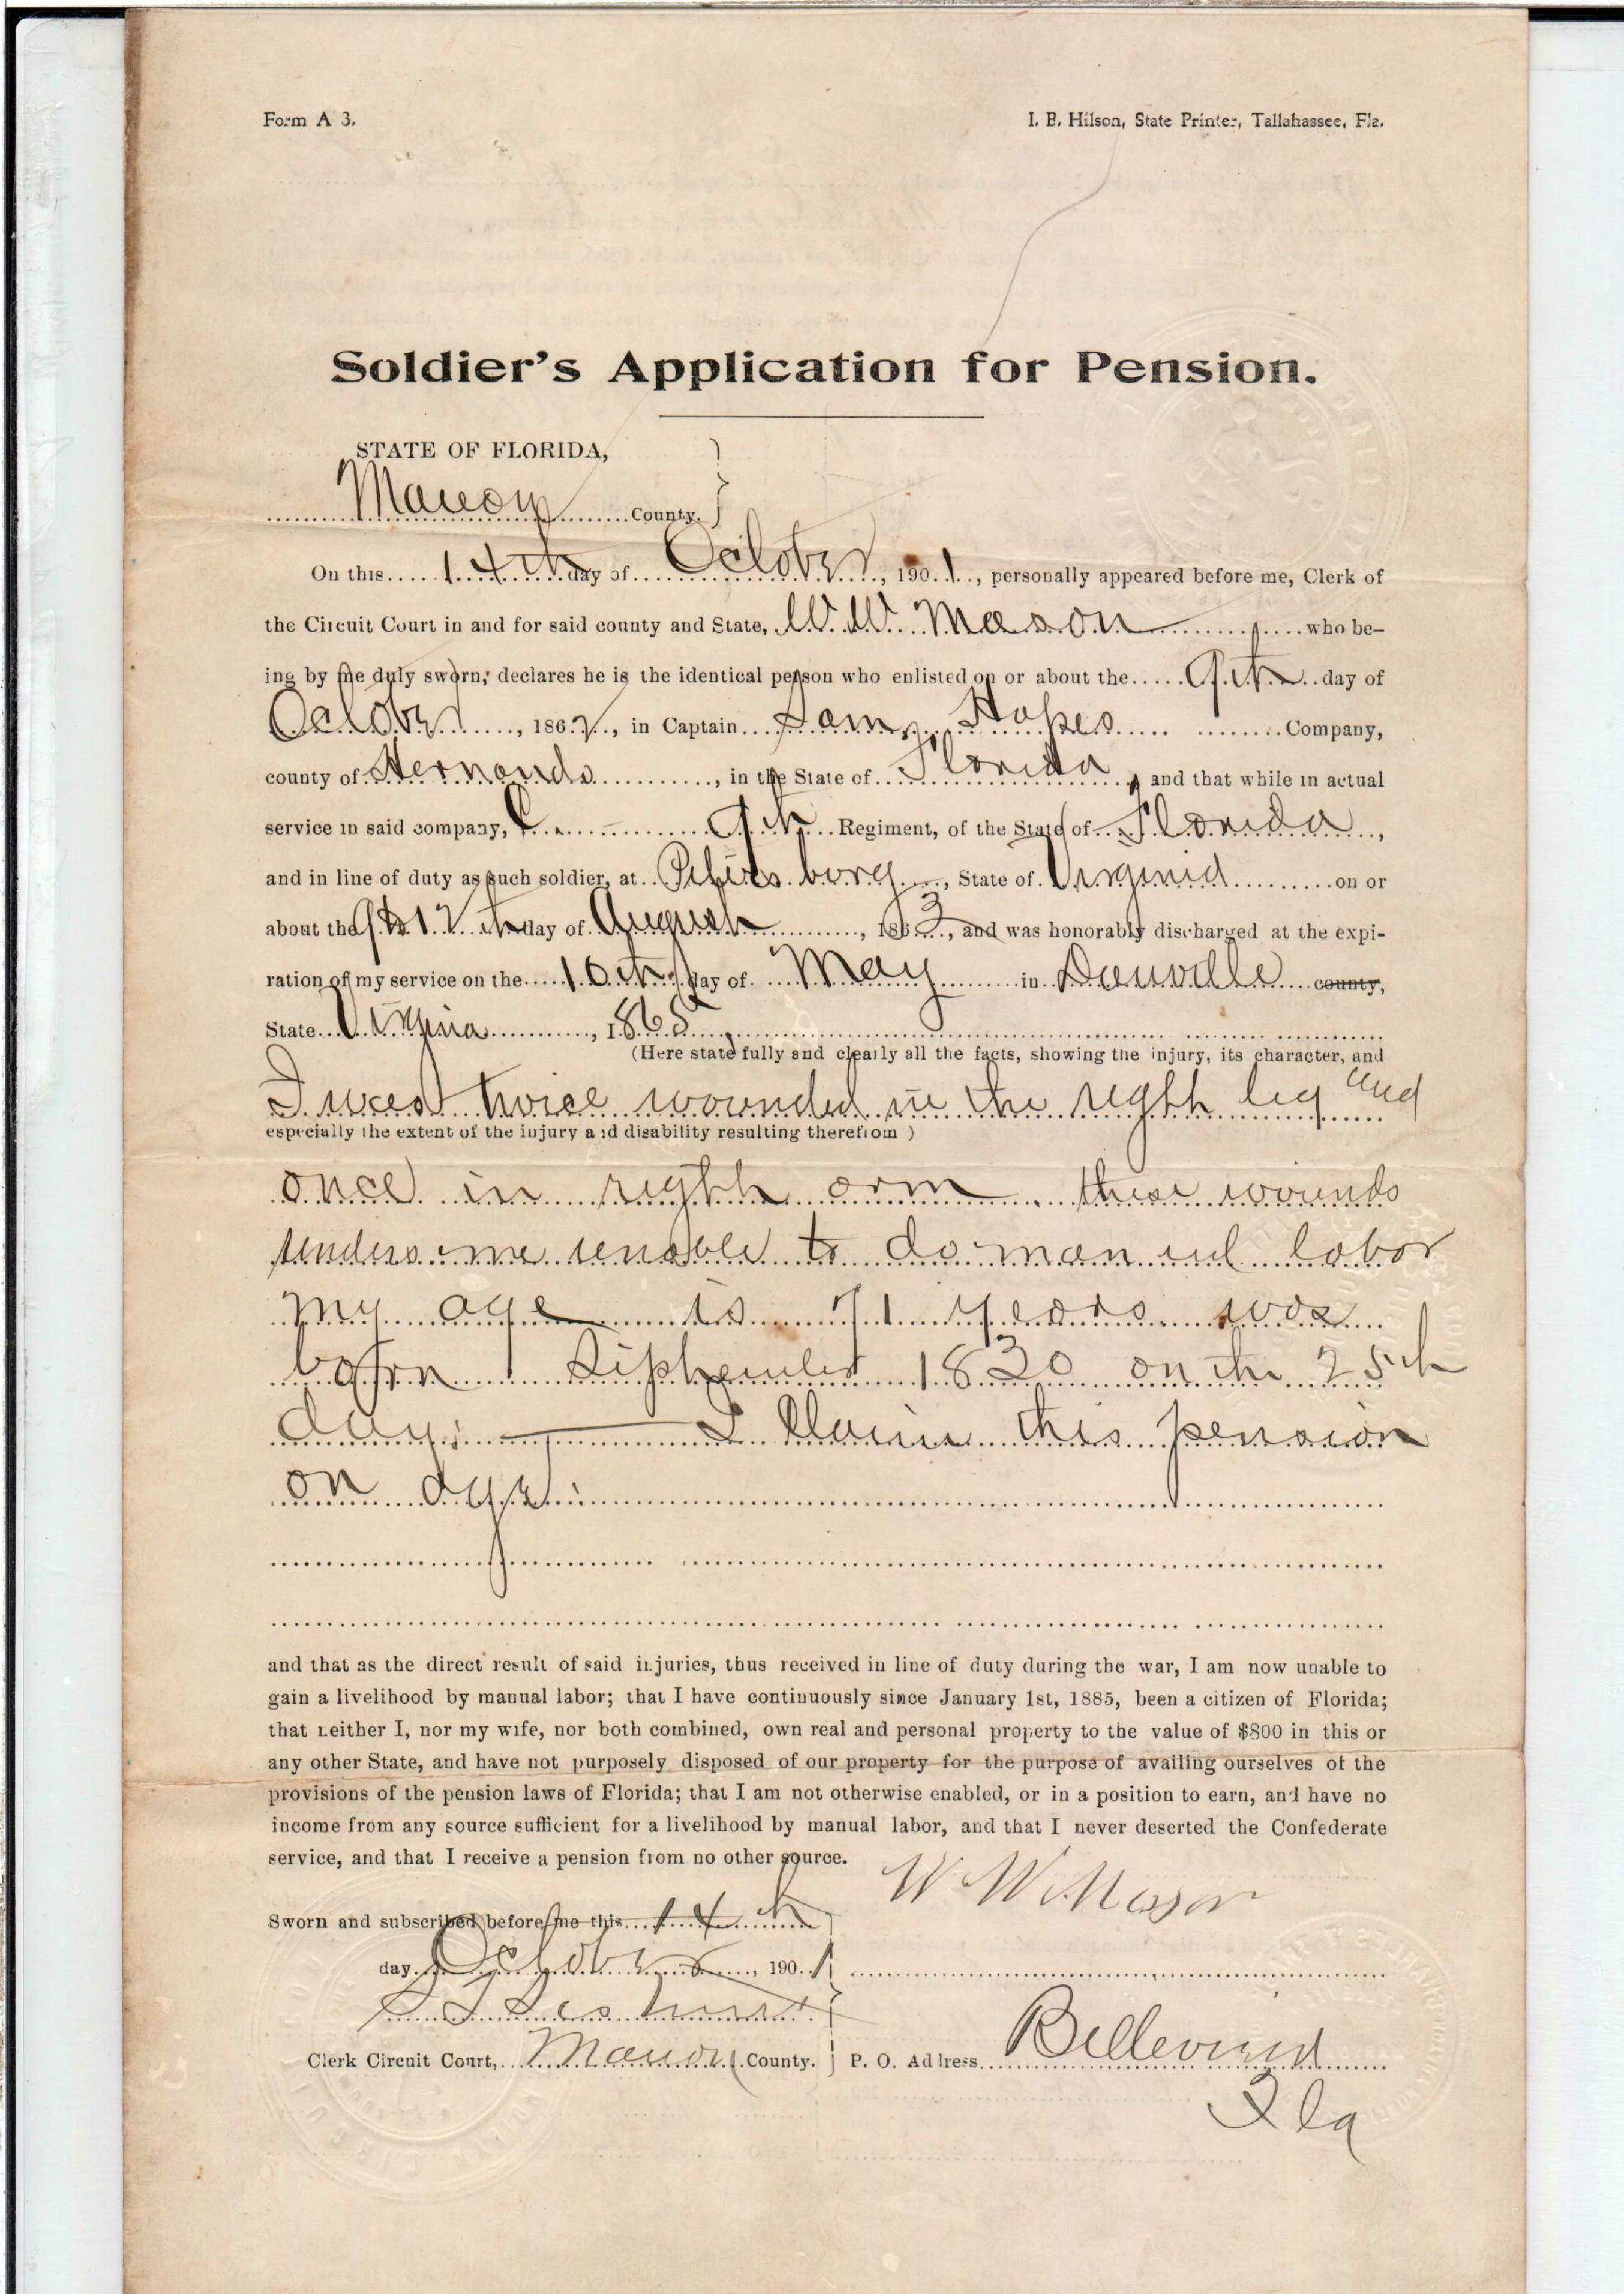 Form A 3.
I. B. Hilson, State Printer, Tallahassee, Fla.
Soldier's Application for Pension.
STATE OF FLORIDA,
Marion County.
On this 14th day of October, 1901, personally appeared before me, Clerk of
the Circuit Court in and for said county and State, W. W. Mason who be-
ing by me duly sworn, declares he is the identical person who enlisted on or about the 9th day of
October, 1862, in Captain Sam Hopes Company,
county of Hernando, in the State of Florida, and that while in actual
service in said company, C. 9th Regiment, of the State of Florida,
and in line of duty as such soldier, at Petersburg, State of Virginia on or
about the 12th day of August, 1863, and was honorably discharged at the expi-
ration of my service on the 10th day of May in Danville county,
State Virginia, 1865
(Here state fully and clearly all the facts, showing the injury, its character, and
I was twice wounded in the right leg and
especially the extent of the injury and disability resulting therefrom)
once in right arm these wounds
renders me unable to do manuel labor
my age is 71 years was
born September 1830 on the 25th
day. I claim this pension
on age
and that as the direct result of said injuries, thus received in line of duty during the war, I am now unable to
gain a livelihood by manual labor; that I have continuously since January 1st, 1885, been a citizen of Florida;
that neither I, nor my wife, nor both combined, own real and personal property to the value of $800 in this or
any other State, and have not purposely disposed of our property for the purpose of availing ourselves of the
provisions of the pension laws of Florida; that I am not otherwise enabled, or in a position to earn, and have no
income from any source sufficient for a livelihood by manual labor, and that I never deserted the Confederate
service, and that I receive a pension from no other source.
W W Mason
Sworn and subscribed before me this 14th
day October, 1901
Clerk Circuit Court, Marion County.
P. O. Address Belleview
Fla